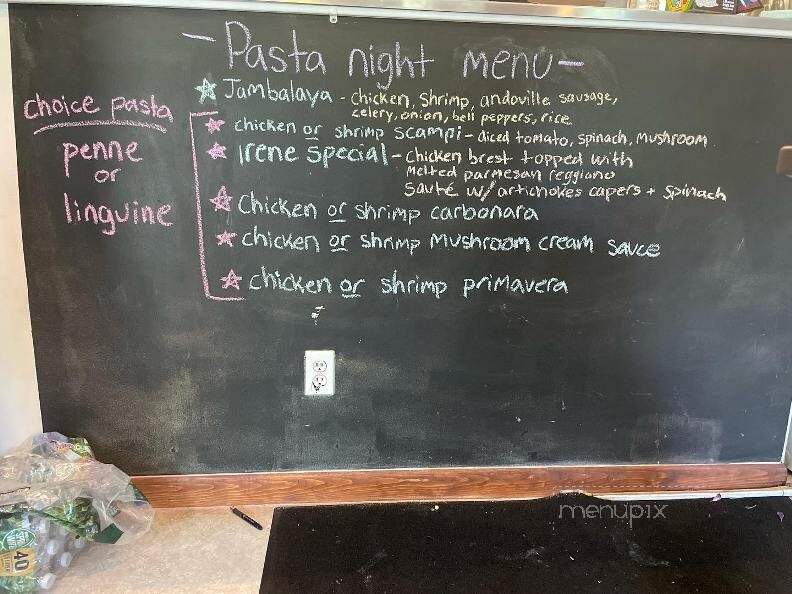 - Pasta night menu -
choice pasta
penne
or
linguine
Jambalaya - chicken, shrimp, andoville sausage,
celery, onion, bell peppers, rice
chicken or shrimp scampi - diced tomato, spinach, mushroom
Irene special - chicken brest topped with
melted parmesan reggiano
sauté w/ artichokes capers + spinach
chicken or shrimp carbonara
chicken or shrimp mushroom cream sauce
chicken or shrimp primavera
40
menupix